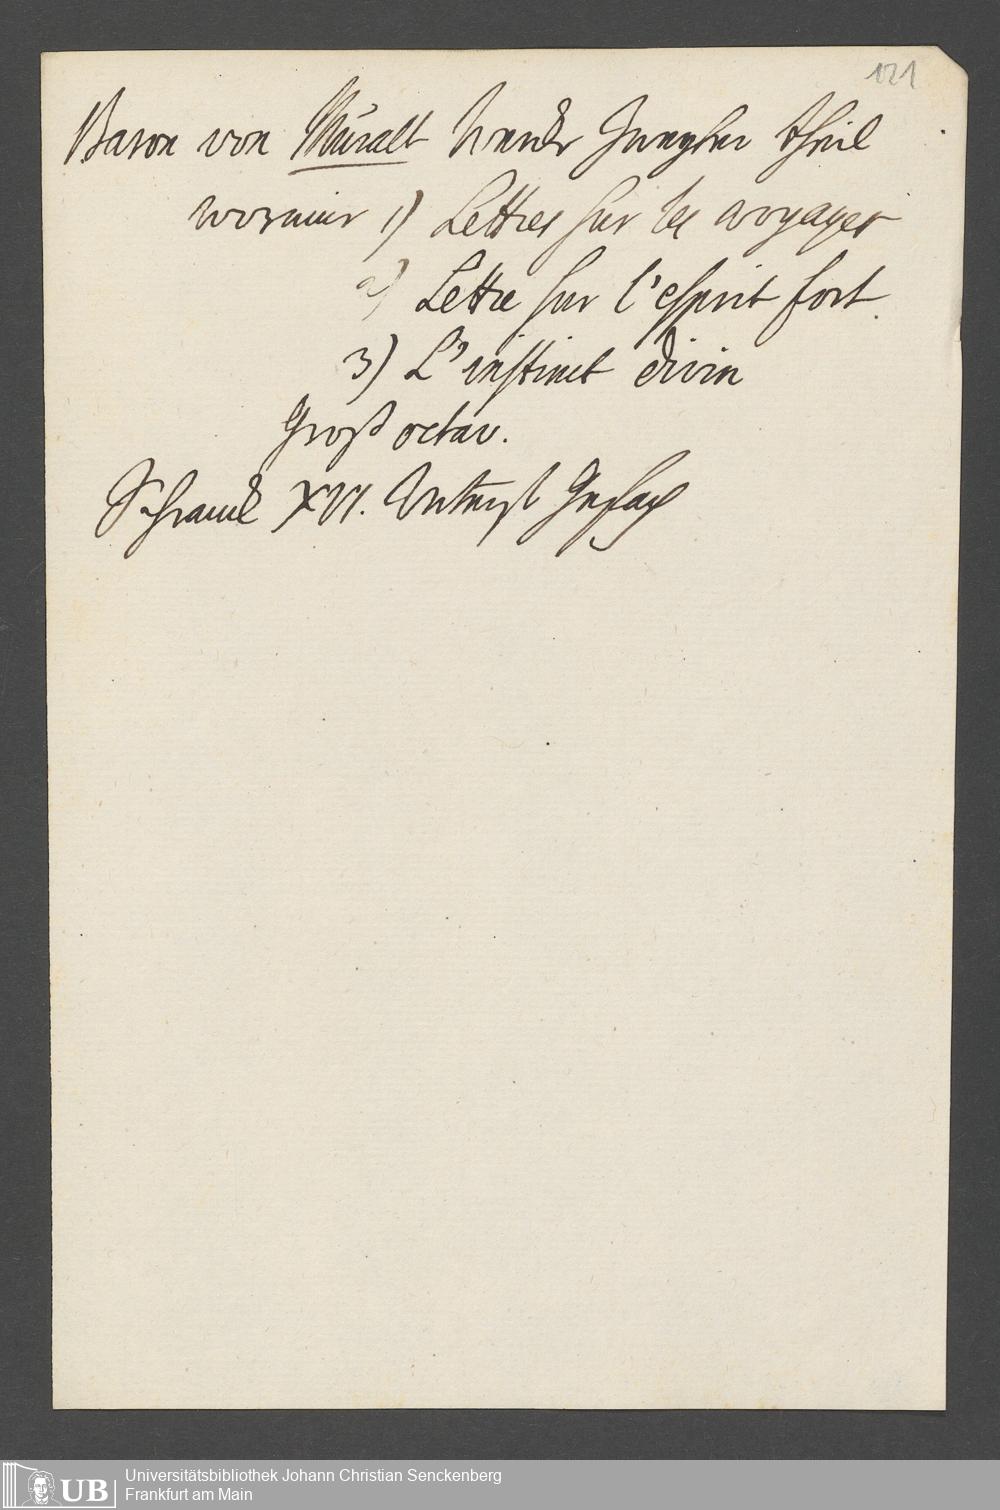 121
Baron von Muralt Wercke Zweyter theil
worinnen 1) Lettres sur les voyages
2) Lettre sur l'esprit fort.
3) L'instinct divin
Groß octav.
Schranck XVI. Unterst Gefach
UB Universitätsbibliothek Johann Christian Senckenberg
Frankfurt am Main